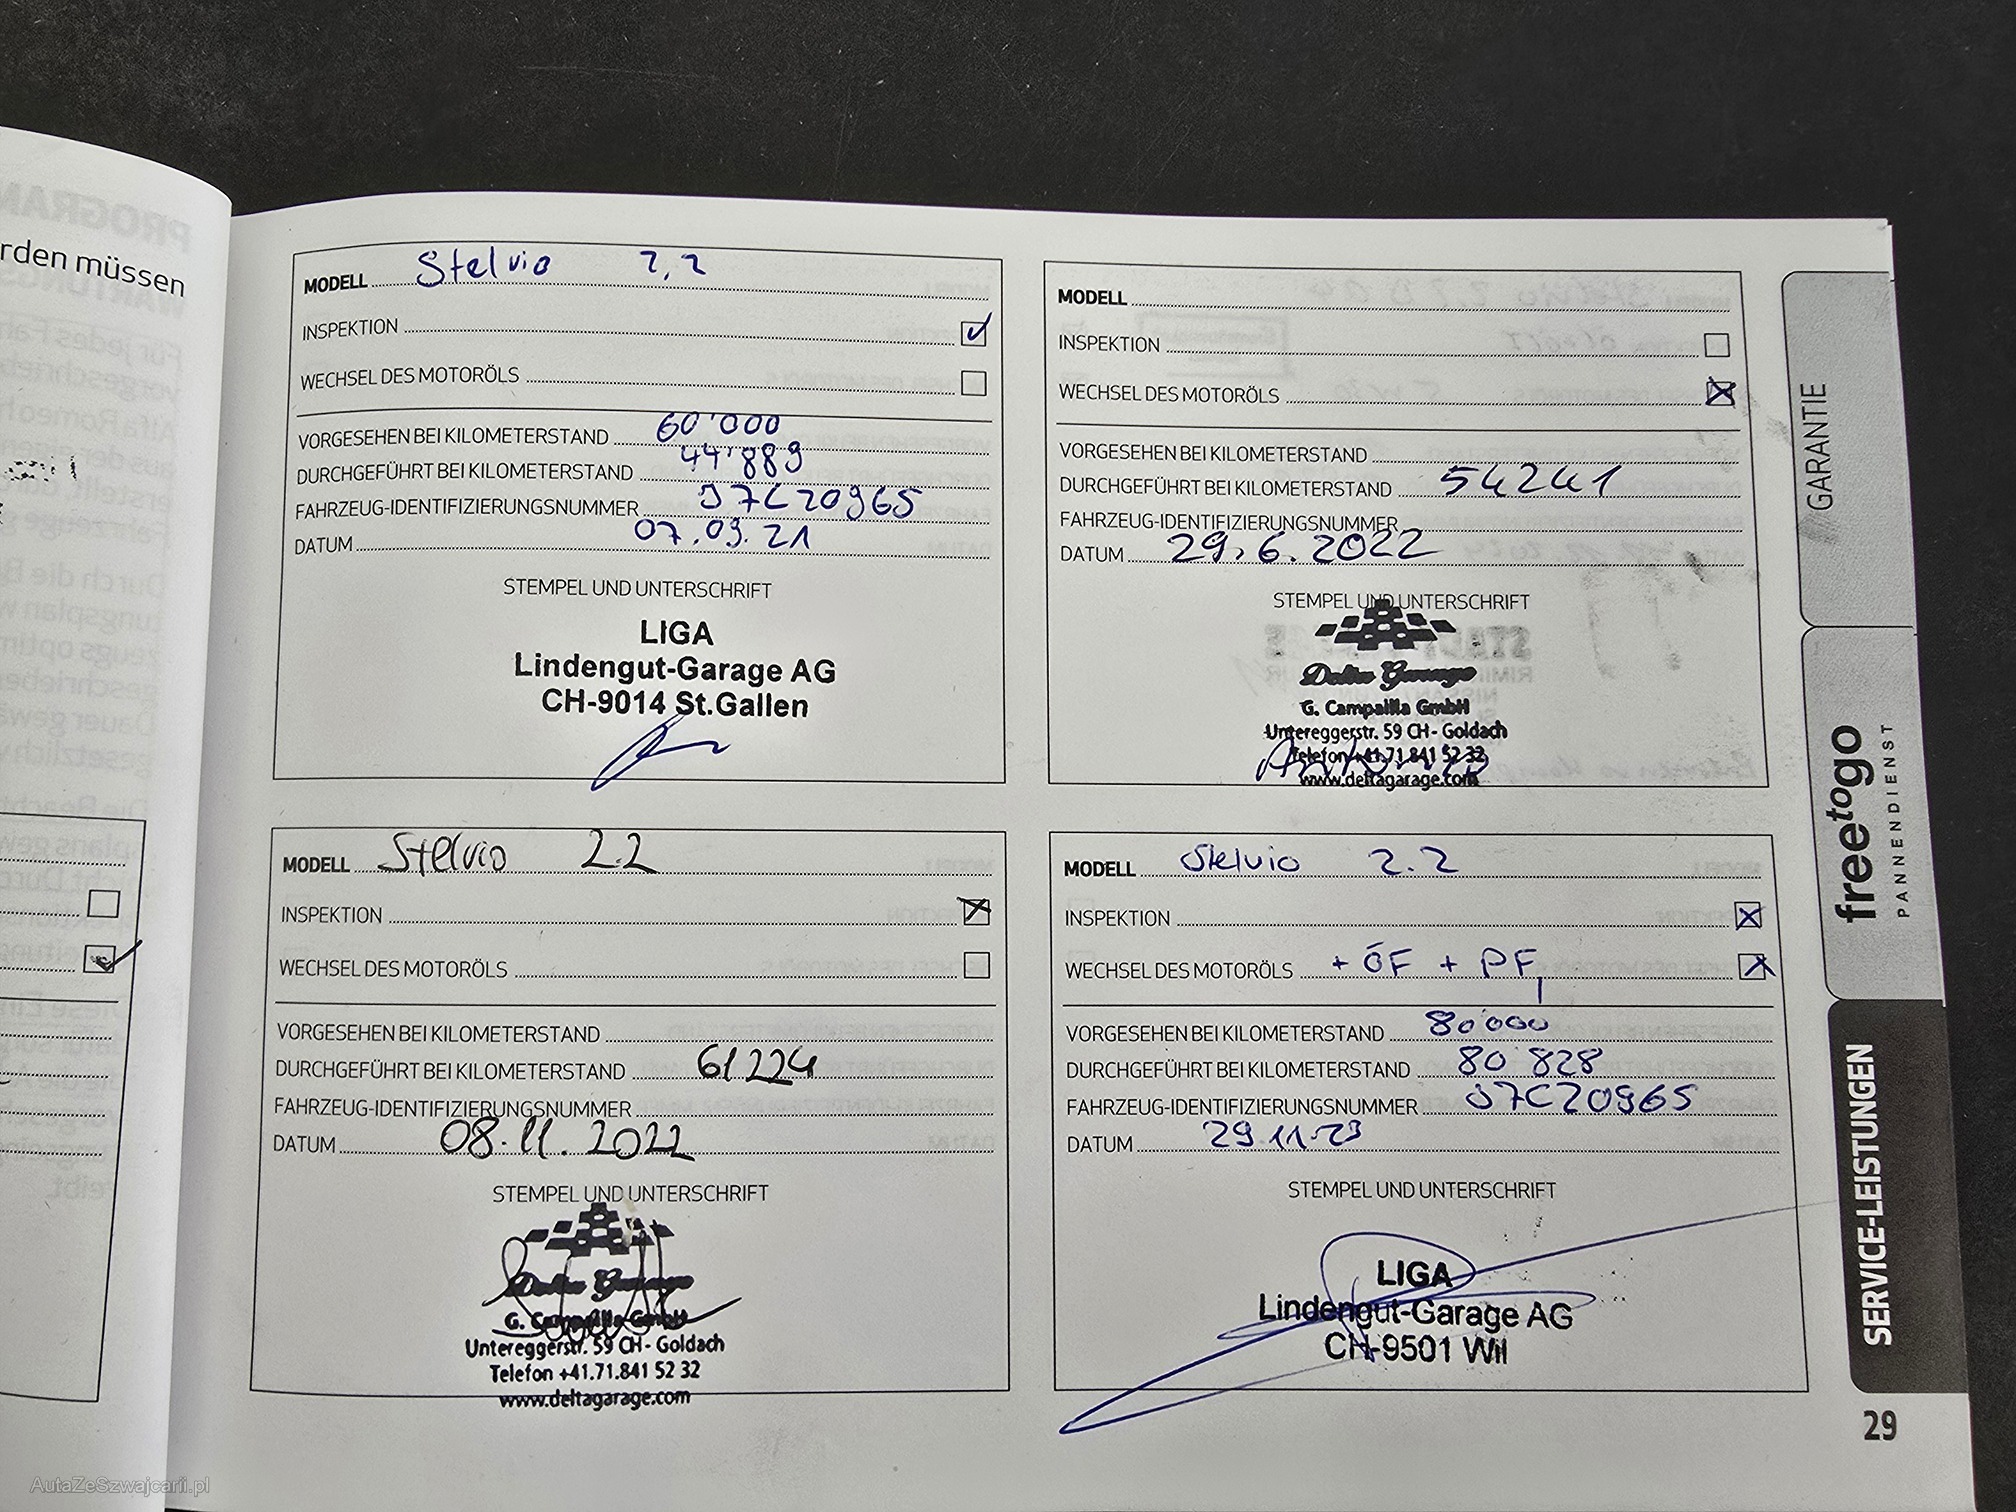 rden müssen
MODELL Stelvio 2,2
INSPEKTION
WECHSEL DES MOTORÖLS
VORGESEHEN BEI KILOMETERSTAND 60'000
DURCHGEFÜHRT BEI KILOMETERSTAND 44'889
FAHRZEUG-IDENTIFIZIERUNGSNUMMER J7C20965
DATUM 07.09.21
STEMPEL UND UNTERSCHRIFT
LIGA
Lindengut-Garage AG
CH-9014 St.Gallen
MODELL
INSPEKTION
WECHSEL DES MOTORÖLS
VORGESEHEN BEI KILOMETERSTAND
DURCHGEFÜHRT BEI KILOMETERSTAND 54241
FAHRZEUG-IDENTIFIZIERUNGSNUMMER
DATUM 29.6.2022
STEMPEL UND UNTERSCHRIFT
Delta Garage
G. Campailla GmbH
Untereggerstr. 59 CH - Goldach
Telefon +41.71.841 52 32
www.deltagarage.com
MODELL Stelvio 2.2
INSPEKTION
WECHSEL DES MOTORÖLS
VORGESEHEN BEI KILOMETERSTAND
DURCHGEFÜHRT BEI KILOMETERSTAND 61224
FAHRZEUG-IDENTIFIZIERUNGSNUMMER
DATUM 08.11.2022
STEMPEL UND UNTERSCHRIFT
Delta Garage
G. Campailla GmbH
Untereggerstr. 59 CH - Goldach
Telefon +41.71.841 52 32
www.deltagarage.com
MODELL Stelvio 2.2
INSPEKTION
WECHSEL DES MOTORÖLS + ÖF + PF
VORGESEHEN BEI KILOMETERSTAND 80'000
DURCHGEFÜHRT BEI KILOMETERSTAND 80 828
FAHRZEUG-IDENTIFIZIERUNGSNUMMER J7C20965
DATUM 29.11.23
STEMPEL UND UNTERSCHRIFT
LIGA
Lindengut-Garage AG
CH-9501 Wil
GARANTIE
freetogo
PANNENDIENST
SERVICE-LEISTUNGEN
29
AutaZeSzwajcarii.pl